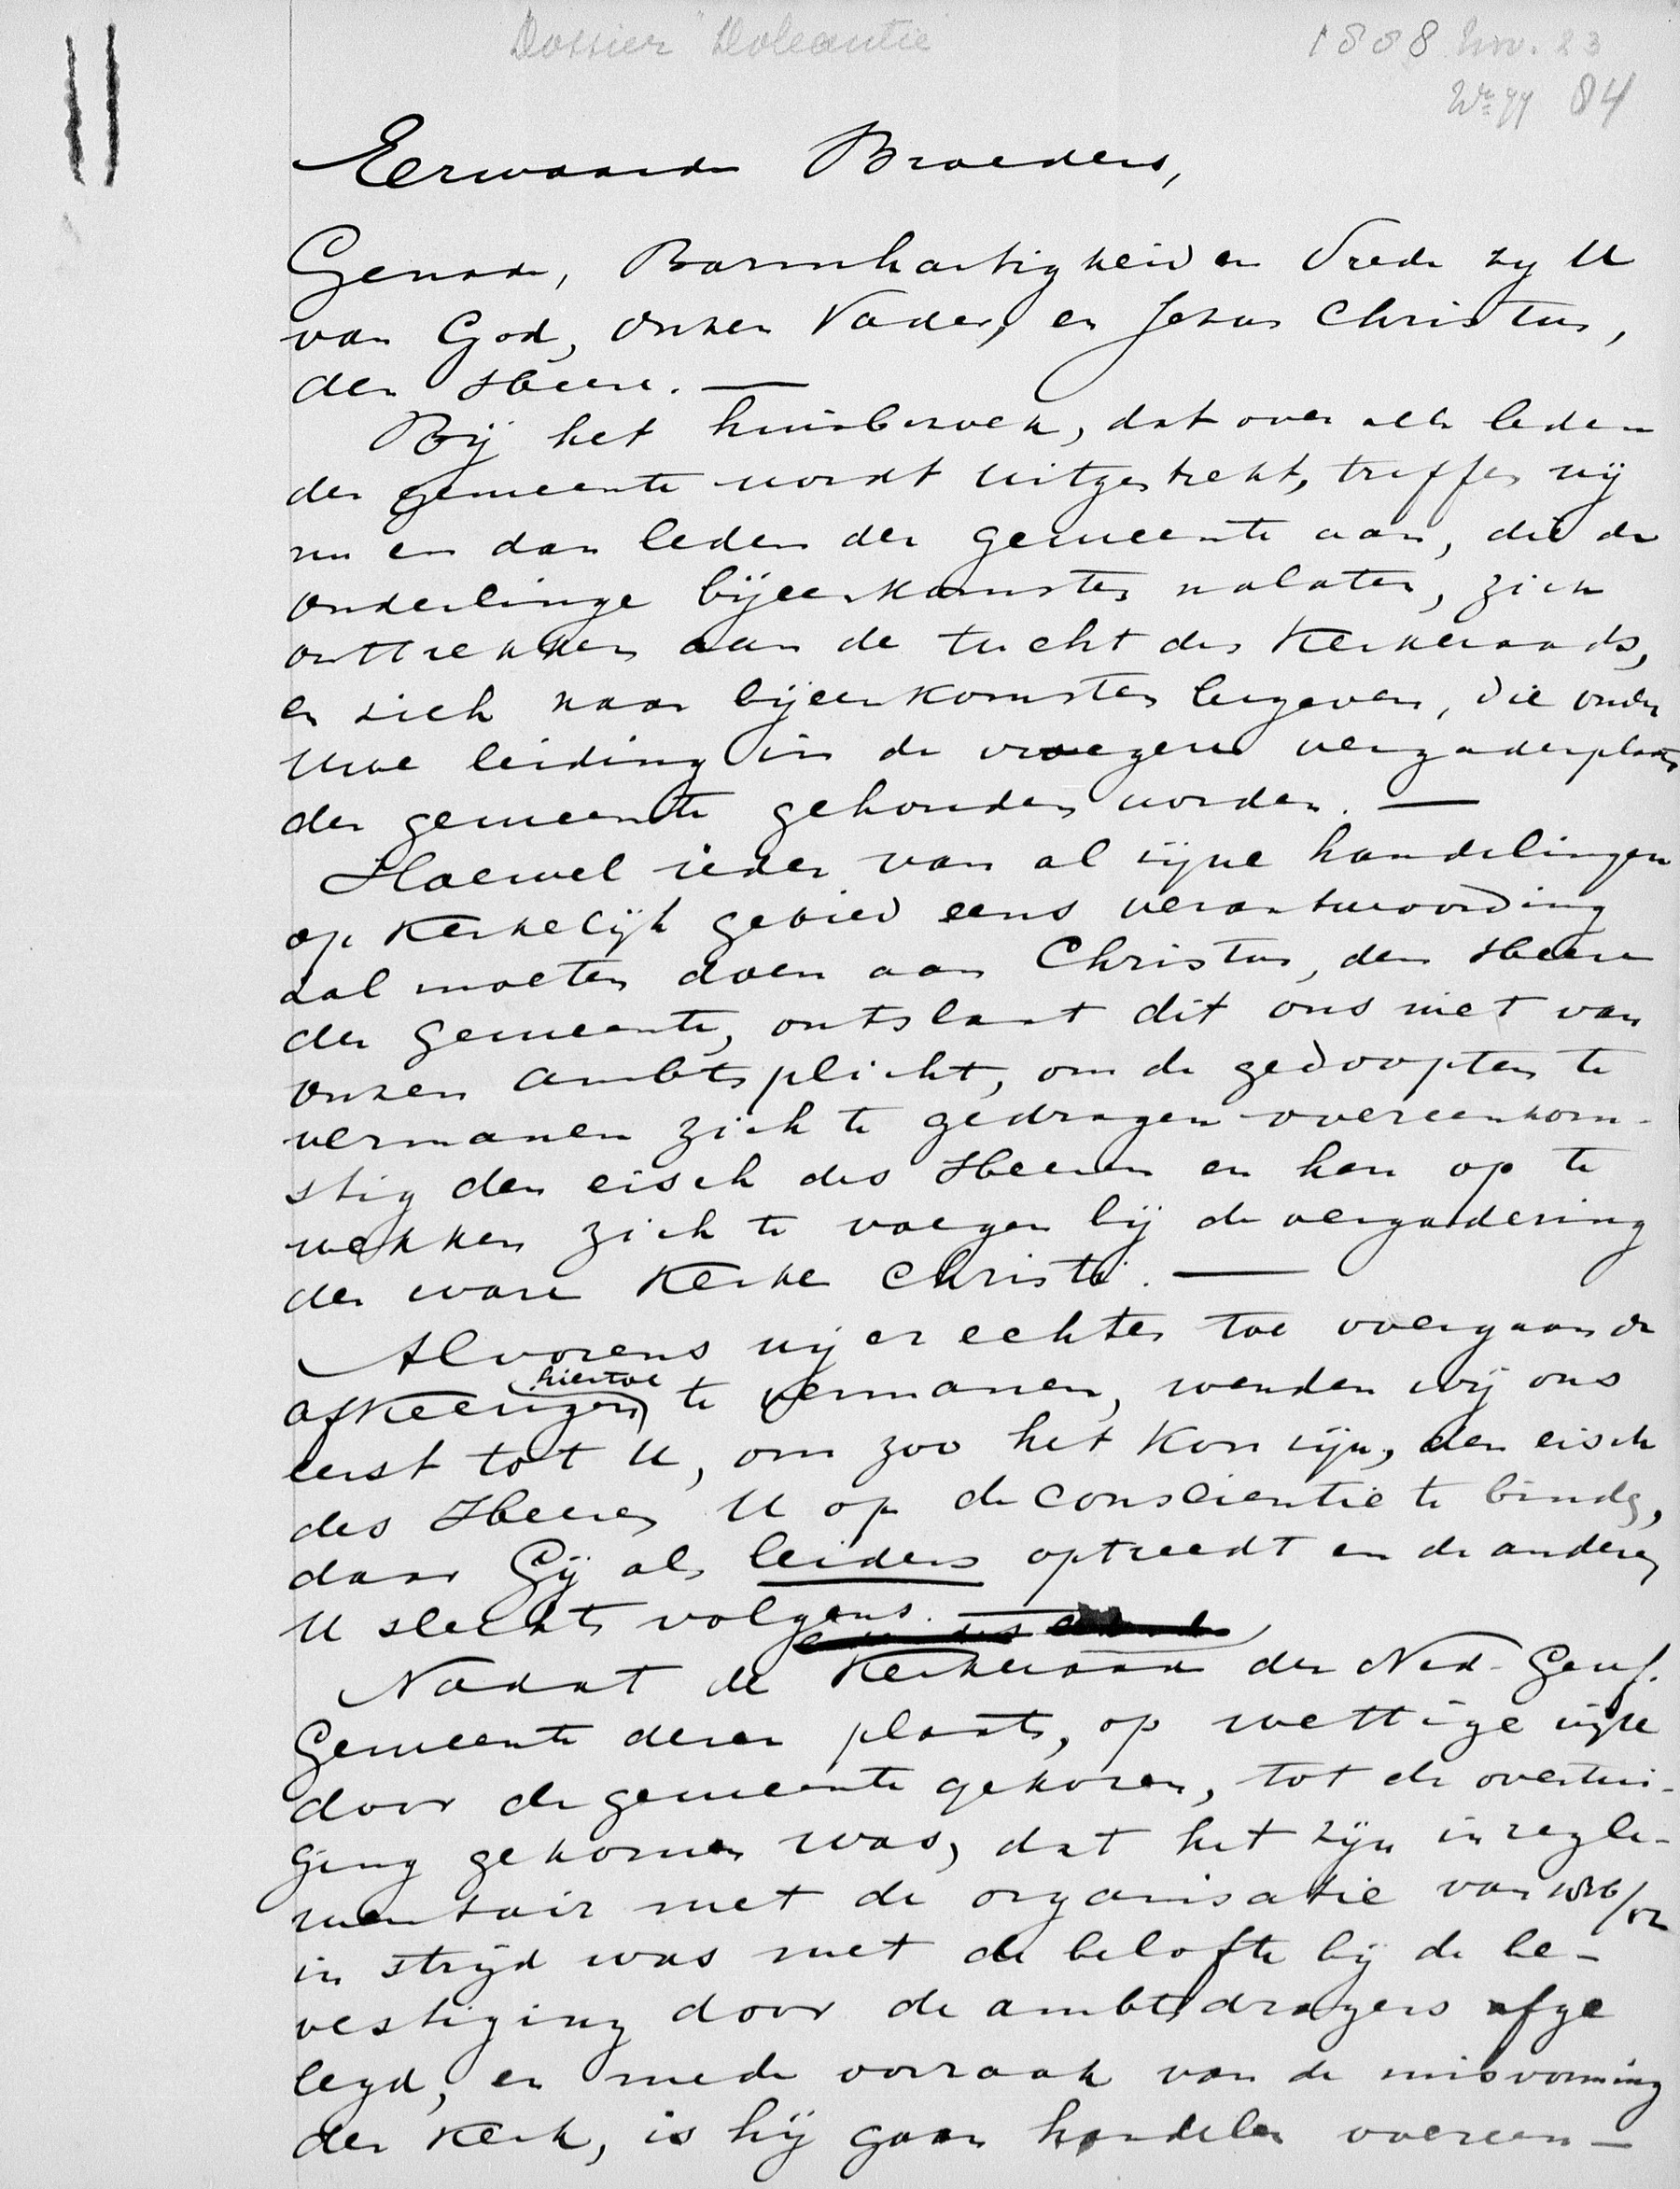 Dossier "Doleantie
1888 Nov. 23
84
Eerwaarde Broeders,
Genade, Barmhartigheid en Vrede zij U
van God, onzen Vader, en Jezus Christus,
den Heere. —
Bij het huisbezoek, dat over alle leden
der gemeente wordt uitgestrekt, treffen wij
nu en dan leden der gemeente aan, die de
onderlinge bijeenkomsten nalaten, zich
onttrekken aan de tucht des Kerkeraads,
en zich naar bijeenkomsten begeven, die onder
Uwe leiding in de vroegere vergaderplaats
der gemeente gehouden worden. —
Hoewel ieder van al zijne handelingen
op Kerkelijk gebied eens verantwoording
zal moeten doen aan Christus, den Heere
der gemeente, ontslaat dit ons niet van
onzen ambtsplicht, om de gedoopten te
vermanen zich te gedragen overeenkom-
stig den eisch des Heeren en hen op te
wekken zich te voegen bij de vergadering
der ware Kerke Christi. —
Alvorens wij er echter toe overgaan de
hiertoe
afkeerigen te vermanen, wenden wij ons
eerst tot U, om zoo het kon zijn, den eisch
des Heeren U op de conscientie te binden,
daar Gij als leiders optreedt en de anderen
U slechts volgens.
Nadat de Kerkeraad der Ned. Geref.
Gemeente dezer plaats, op wettige wijze
door de gemeente gekozen, tot de overtui-
ging gekomen was, dat het zijn in regle-
mentair met de organisatie van 1816/52
in strijd was met de belofte bij de be-
vestiging door de ambtsdragers afge
legd, en mede oorzaak van de misvorming
der Kerk, is hij gaan handelen overeen-